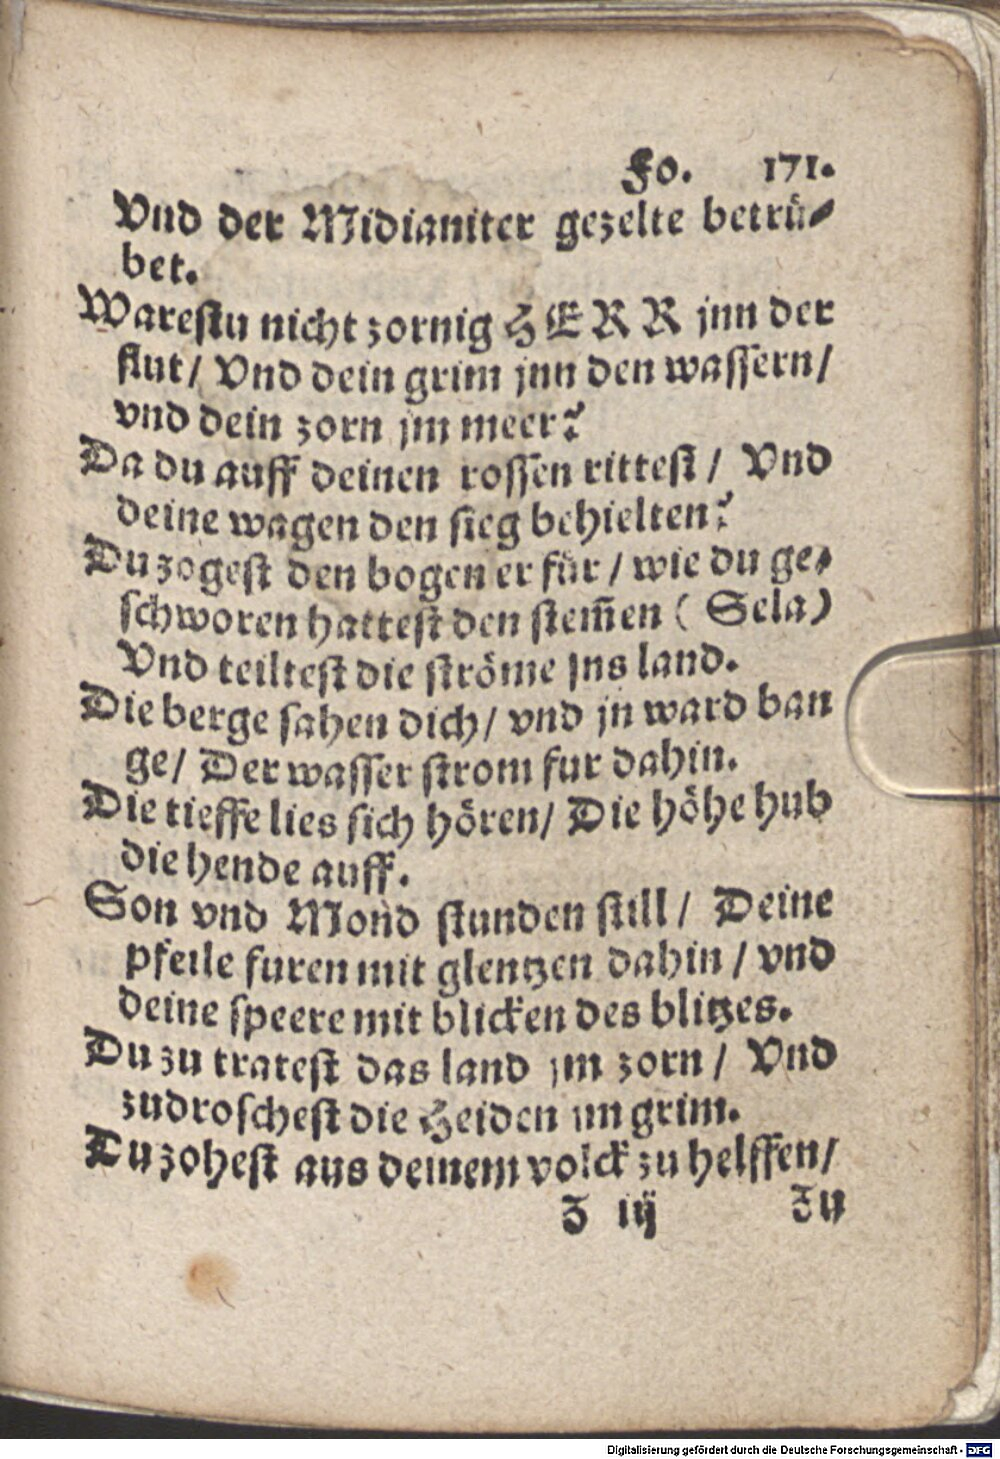 Fo. 171.
Vnd der Midianiter gezelte betrü-
bet.
Warestu nicht zornig HERR jnn der
flut/ Vnd dein grim jnn den wassern/
vnd dein zorn jm meer?
Da du auff deinen rossen rittest/ Vnd
deine wagen den sieg behielten?
Du zogest den bogen erfür/ wie du ge-
schworen hattest den stem̄en (Sela)
Vnd teiltest die ströme jns land.
Die berge sahen dich/ vnd jn ward ban
ge/ Der wasser strom fur dahin.
Die tieffe lies sich hören/ Die höhe hub
die hende auff.
Son vnd Mond stunden still/ Deine
pfeile furen mit glentzen dahin/ vnd
deine speere mit blicken des blitzes.
Du zu tratest das land jm zorn/ Vnd
zudroschest die Heiden im grim.
Du zohest aus deinem volck zu helffen/
Z iij Zu
Digitalisierung gefördert durch die Deutsche Forschungsgemeinschaft - DFG